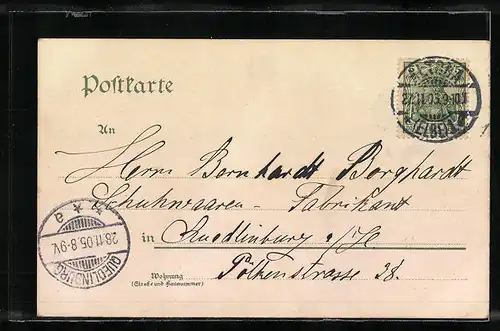 Postkarte
27.11.05.9-10
An
Herrn Bernhardt Borghardt
Schuhwaaren- Fabrikant
in Quedlinburg a/H
Pölkenstrasse 38.
Wohnung
(Straße und Hausnummer)
QUEDLINBURG
28.11.05.8-9V.
* * a